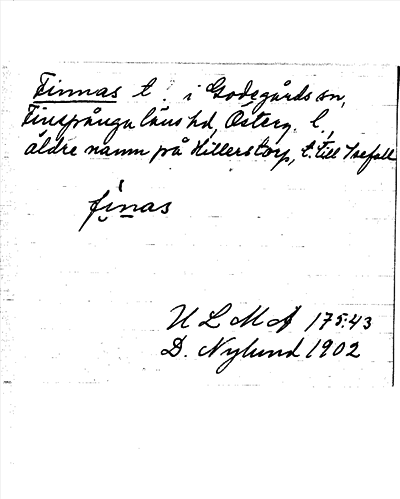 Finnas t. i Godegårds sn,
Finspånga läns hd, Österg. l,
äldre namn på Hillerstorp, t. till Isefall
fínas
ULMA 175:43
D. Nylund 1902